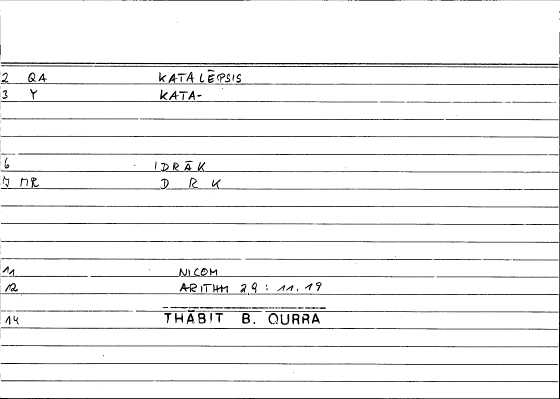 2 QA KATALĒPSIS
3 Y KATA-
6 IDRĀK
MR D R K
11 NICOM
12 ARITHM 29 : 11.19
14 THĀBIT B. QURRA